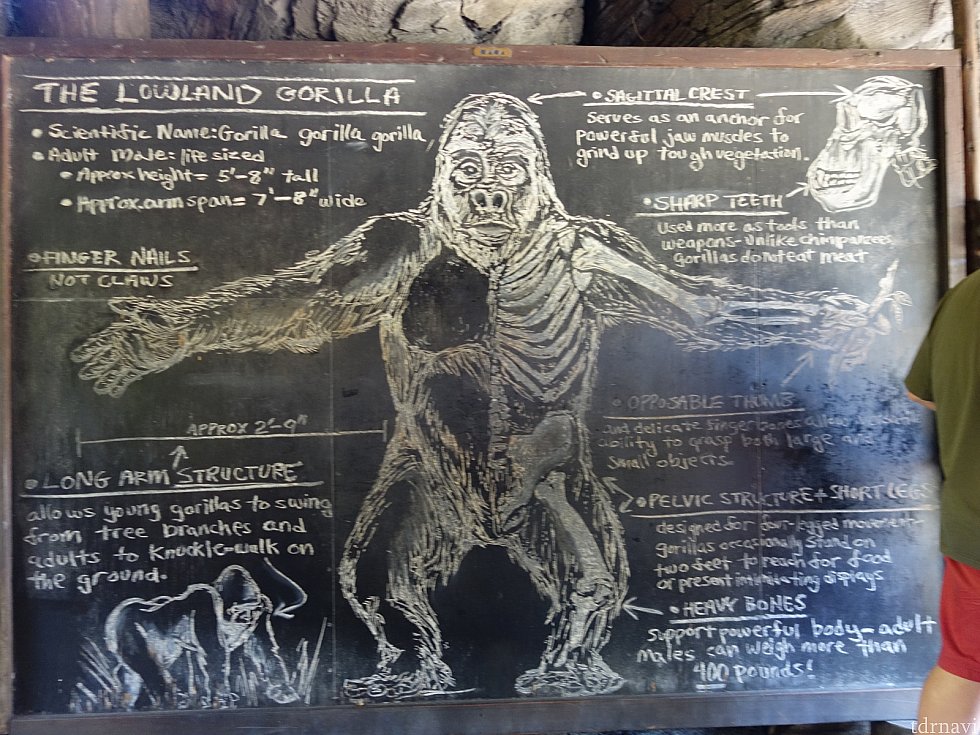 THE LOWLAND GORILLA
• Scientific Name: Gorilla gorilla gorilla
• Adult Male: life sized
• Approx height = 5'-8" tall
• Approx. arm span = 7'-8" wide
• FINGER NAILS
NOT CLAWS
APPROX 2'-9"
• LONG ARM STRUCTURE
allows young gorillas to swing
from tree branches and
adults to knuckle-walk on
the ground.
• SAGITTAL CREST
Serves as an anchor for
powerful jaw muscles to
grind up tough vegetation.
• SHARP TEETH
Used more as tools than
weapons-unlike chimpanzees
gorillas do not eat meat
• OPPOSABLE THUMB
and delicate finger bones
ability to grasp both large and
small objects.
• PELVIC STRUCTURE + SHORT LEGS
designed for four-legged movement-
gorillas occasionally stand on
two feet to reach for food
or present intimidating displays
• HEAVY BONES
support powerful body-adult
males can weigh more than
400 pounds!
tdrnavi